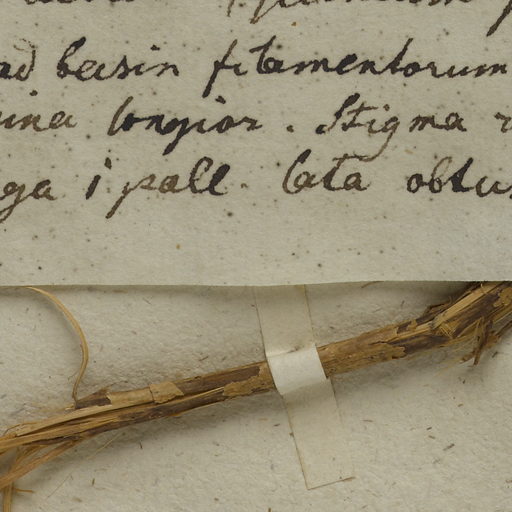 ad basin filamentorum
longior. Stigma
ga i poll. lata obtus